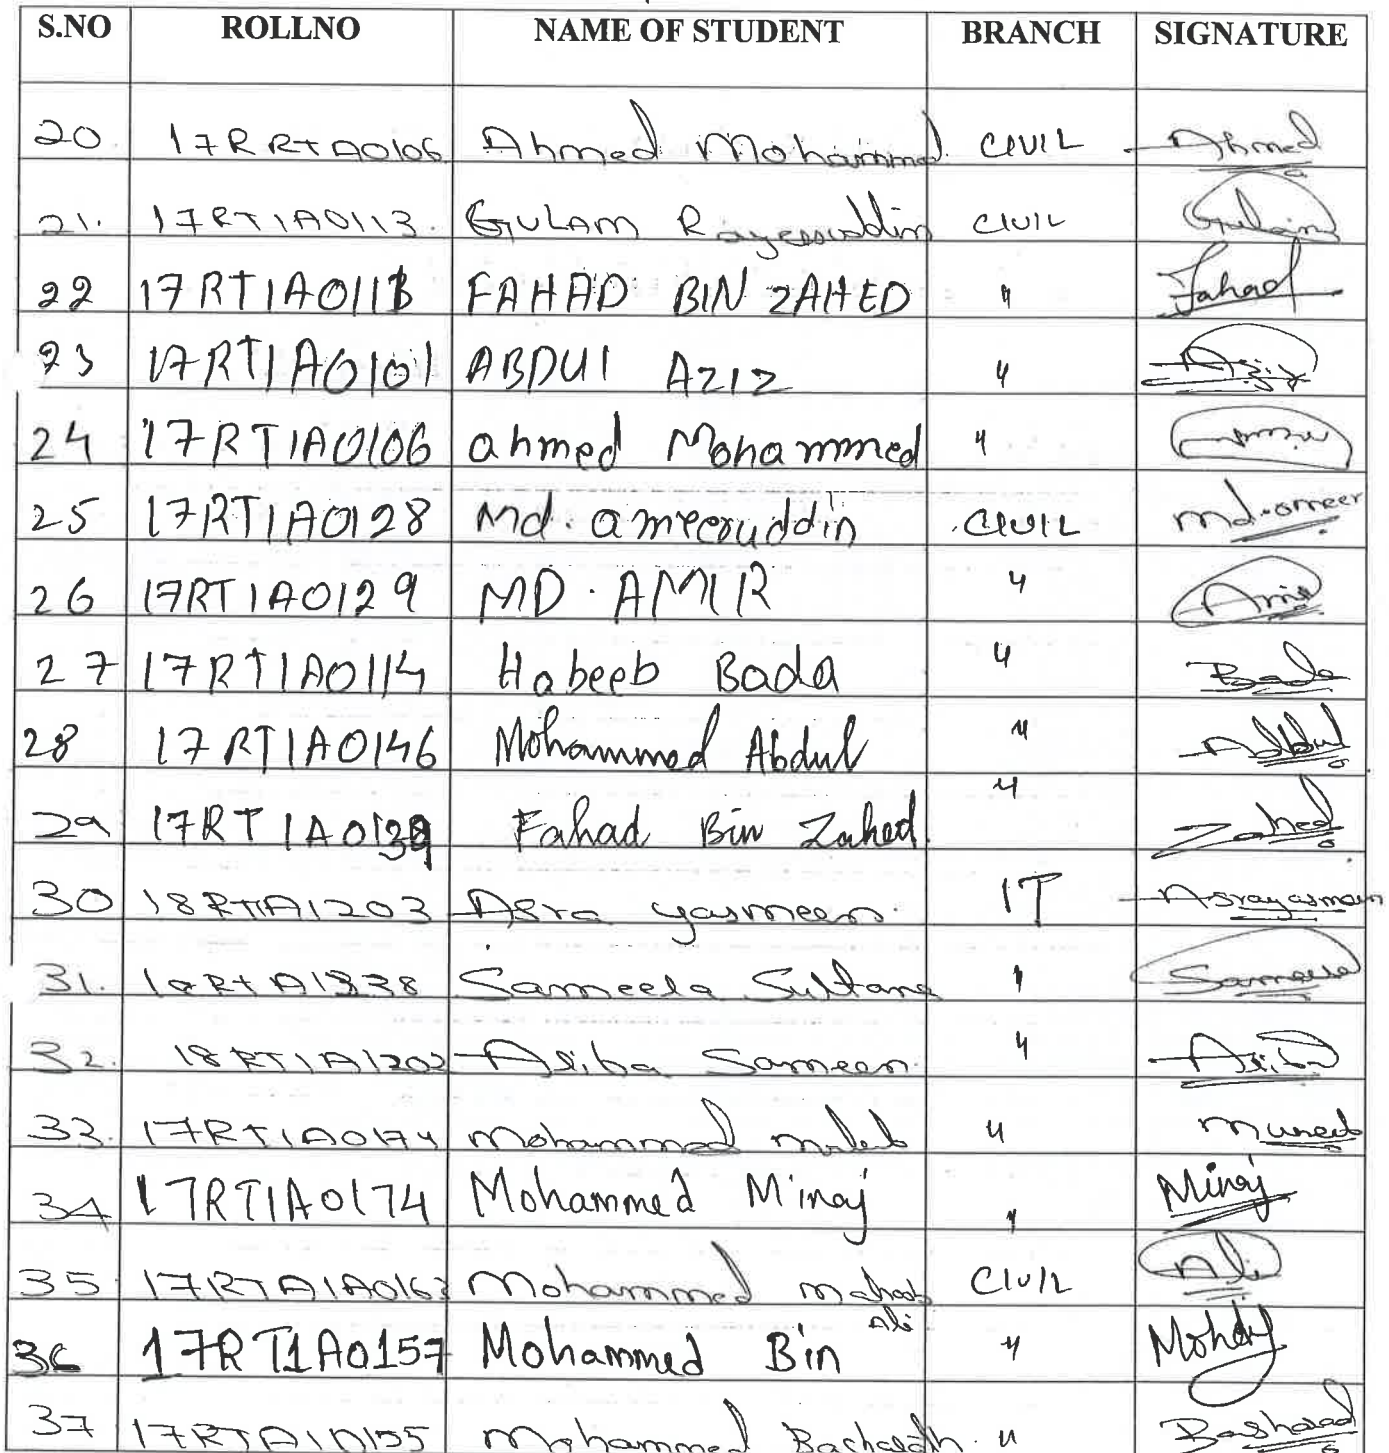 S.NO ROLLNO NAME OF STUDENT BRANCH SIGNATURE
20. 17RRTA0106 Ahmed Mohammed CIVIL Ahmed
21. 17RT1A0113. GULAM CIVIL Gulam
22 17RT1A011 FAHAD BIN ZAHED " Fahad
23 17RT1A0101 ABDUl AZIZ " Aziz
24 17RT1A0106 ahmed Mohammed "
25 17RT1A0128 Md. ameeruddin CIVIL md.omeer
26 17RT1A0129 MD. AMIR " Amir
27 17RT1A0114 Habeeb Bada " Bada
28 17RT1A0146 Mohammed Abdul " Abdul
29 17RT1A013 Fahad Bin Zahed. " Zahed
30 18RT1A1203 Asra yasmeen. IT Asrayasmeen
31. Sameela Sultana " Sameela
32. 18RT1A1202 Asiba Sameen. " Asiba
33. 17RT1A0174 Mohammed " muneeb
34 17RT1A0174 Mohammed Minaj " Minaj
35 17RTA1A0163 Mohammed CIVIL Ali
Ali
36 17RT1A0157 Mohammed Bin "
37 17RTA10155 Mohammed "